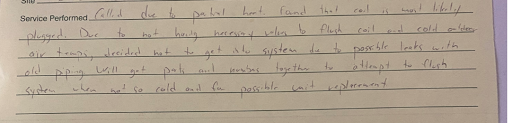 Service Performed Called due to partial heat found that coil is most likely
plugged. Due to not having necessary valves to flush coil and cold outdoor
air temps, decided not to get into system due to possible leaks with
old piping will get parts and together to attempt to flush
system when not so cold and for possible unit replacement